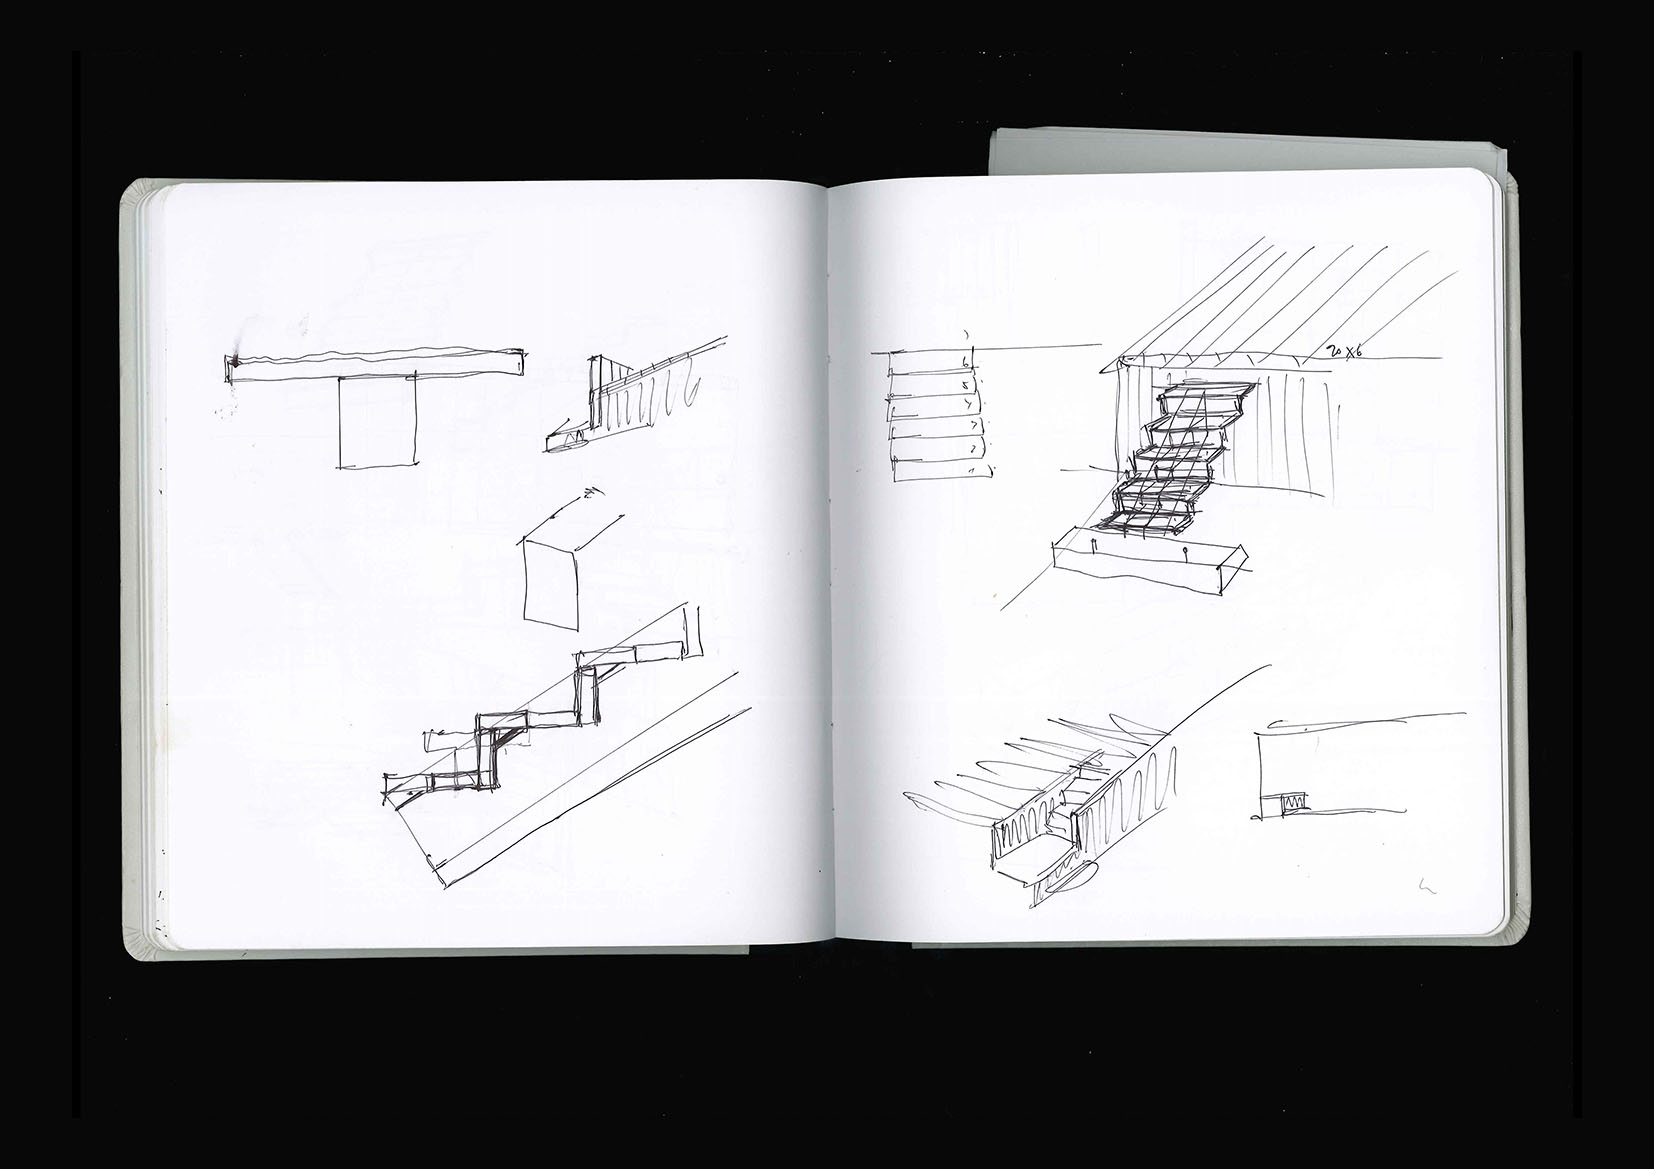 6
5
4
3
2
1
20x6